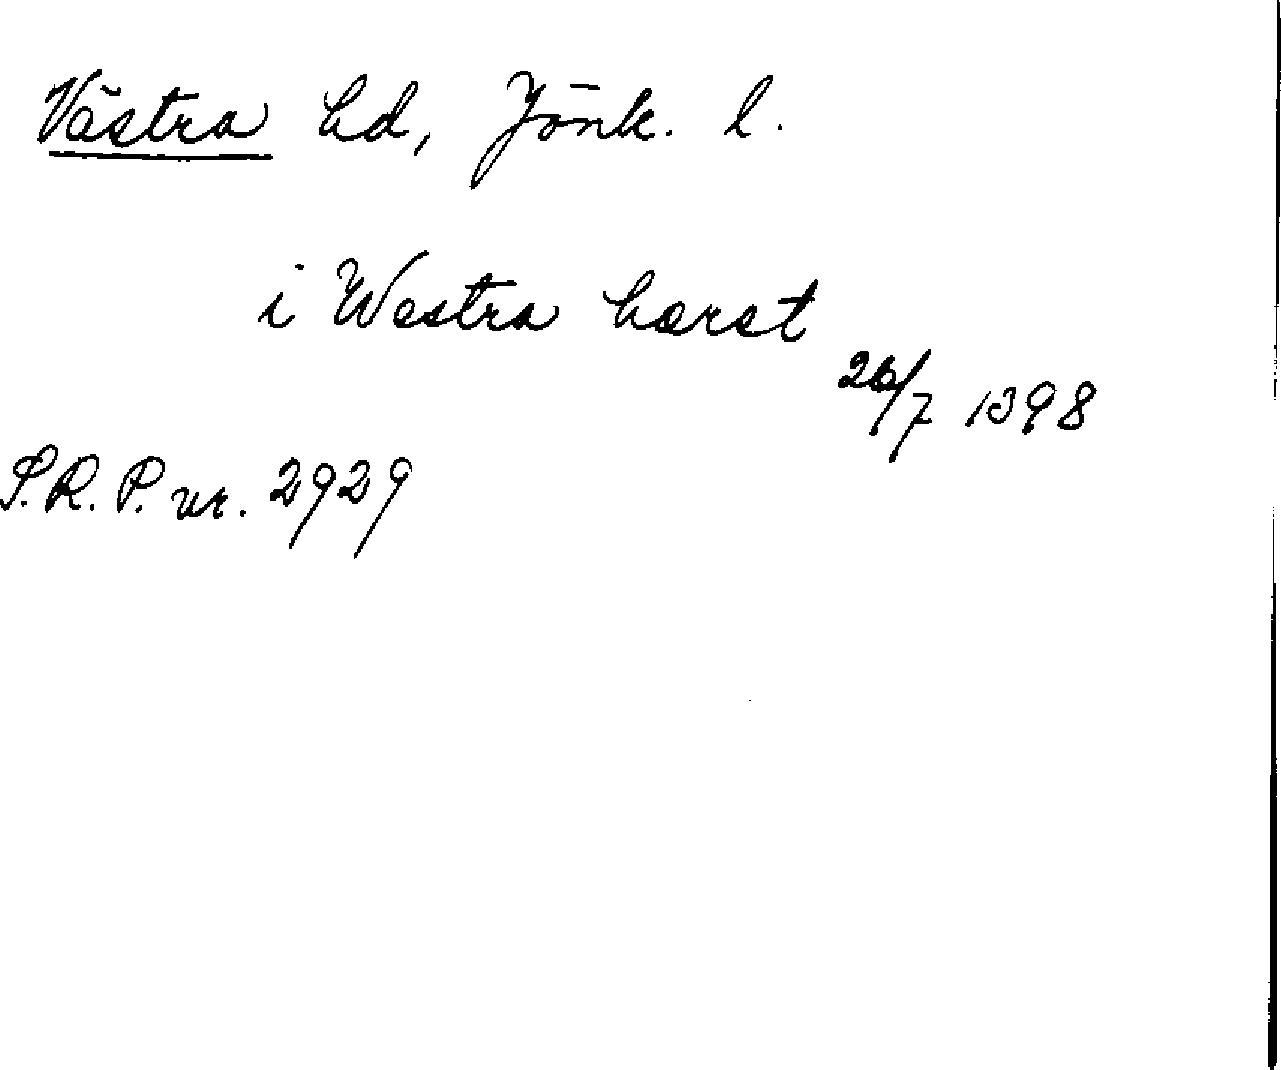 Västra hd, Jönk. l.
i Westra hærst
26/7 1398
S.R.P. nr. 2929